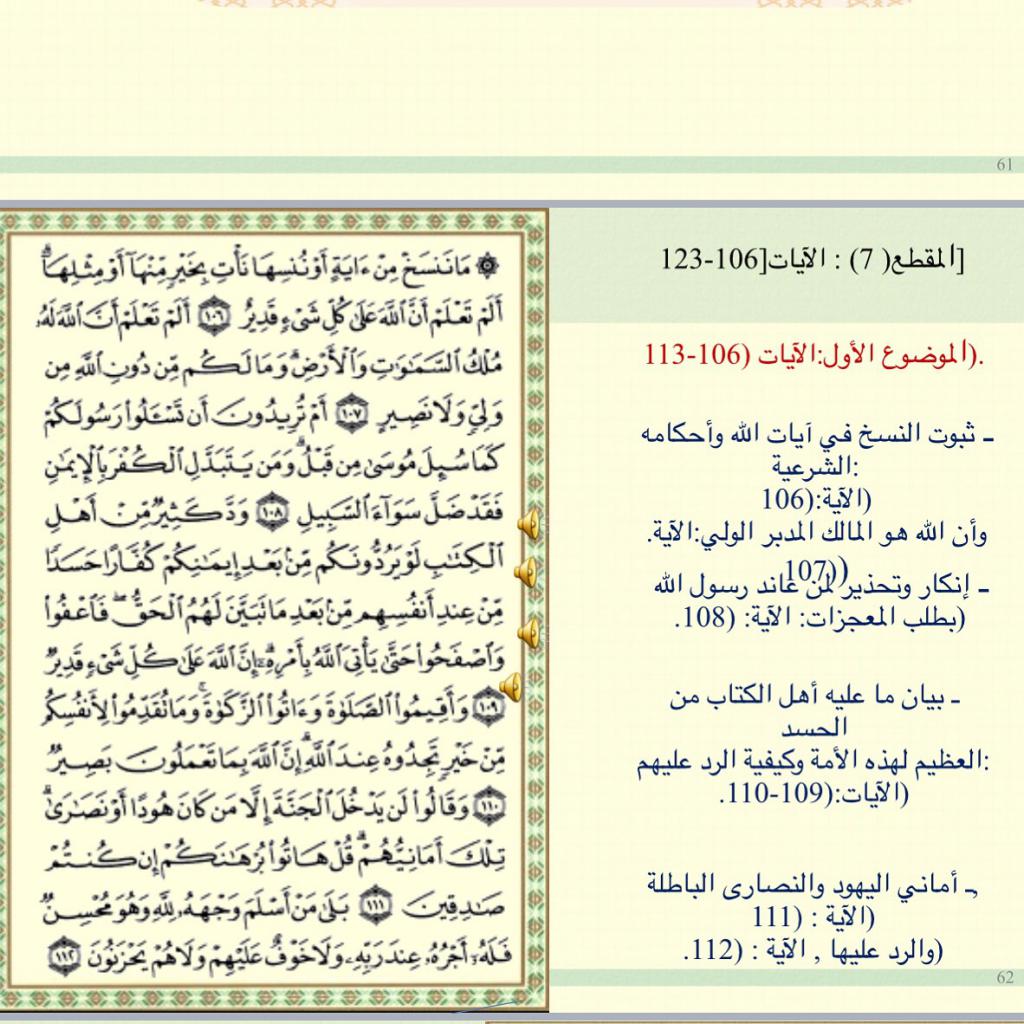 61
[المقطع( 7) : الآيات[106-123
.(الموضوع الأول:الآيات (106-113
ـ ثبوت النسخ في آيات الله وأحكامه
:الشرعية
(الآية:(106
وأن الله هو المالك المدبر الولي:الآية.
((107
ـ إنكار وتحذير لمن عاند رسول الله
(بطلب المعجزات: الآية: (108.
ـ بيان ما عليه أهل الكتاب من
الحسد
:العظيم لهذه الأمة وكيفية الرد عليهم
(الآيات:(109-110.
ـ أماني اليهود والنصارى الباطلة
(الآية : (111
(والرد عليها , الآية : (112.
۞ مَا نَنسَخْ مِنْ ءَايَةٍ أَوْ نُنسِهَا نَأْتِ بِخَيْرٍ مِّنْهَآ أَوْ مِثْلِهَآ ۗ
أَلَمْ تَعْلَمْ أَنَّ ٱللَّهَ عَلَىٰ كُلِّ شَىْءٍ قَدِيرٌ ١٠٦ أَلَمْ تَعْلَمْ أَنَّ ٱللَّهَ لَهُۥ
مُلْكُ ٱلسَّمَٰوَٰتِ وَٱلْأَرْضِ ۗ وَمَا لَكُم مِّن دُونِ ٱللَّهِ مِن
وَلِىٍّ وَلَا نَصِيرٍ ١٠٧ أَمْ تُرِيدُونَ أَن تَسْـَٔلُوا۟ رَسُولَكُمْ
كَمَا سُئِلَ مُوسَىٰ مِن قَبْلُ ۗ وَمَن يَتَبَدَّلِ ٱلْكُفْرَ بِٱلْإِيمَٰنِ
فَقَدْ ضَلَّ سَوَآءَ ٱلسَّبِيلِ ١٠٨ وَدَّ كَثِيرٌ مِّنْ أَهْلِ
ٱلْكِتَٰبِ لَوْ يَرُدُّونَكُم مِّنۢ بَعْدِ إِيمَٰنِكُمْ كُفَّارًا حَسَدًا
مِّنْ عِندِ أَنفُسِهِم مِّنۢ بَعْدِ مَا تَبَيَّنَ لَهُمُ ٱلْحَقُّ ۖ فَٱعْفُوا۟
وَٱصْفَحُوا۟ حَتَّىٰ يَأْتِىَ ٱللَّهُ بِأَمْرِهِۦٓ ۗ إِنَّ ٱللَّهَ عَلَىٰ كُلِّ شَىْءٍ قَدِيرٌ
١٠٩ وَأَقِيمُوا۟ ٱلصَّلَوٰةَ وَءَاتُوا۟ ٱلزَّكَوٰةَ ۚ وَمَا تُقَدِّمُوا۟ لِأَنفُسِكُم
مِّنْ خَيْرٍ تَجِدُوهُ عِندَ ٱللَّهِ ۗ إِنَّ ٱللَّهَ بِمَا تَعْمَلُونَ بَصِيرٌ
١١٠ وَقَالُوا۟ لَن يَدْخُلَ ٱلْجَنَّةَ إِلَّا مَن كَانَ هُودًا أَوْ نَصَٰرَىٰ ۗ
تِلْكَ أَمَانِيُّهُمْ ۗ قُلْ هَاتُوا۟ بُرْهَٰنَكُمْ إِن كُنتُمْ
صَٰدِقِينَ ١١١ بَلَىٰ مَنْ أَسْلَمَ وَجْهَهُۥ لِلَّهِ وَهُوَ مُحْسِنٌ
فَلَهُۥٓ أَجْرُهُۥ عِندَ رَبِّهِۦ وَلَا خَوْفٌ عَلَيْهِمْ وَلَا هُمْ يَحْزَنُونَ ١١٢
62